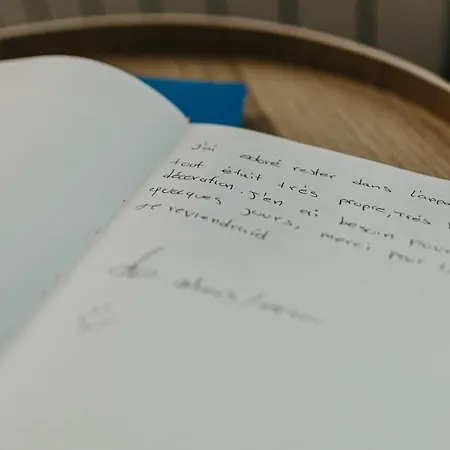 j'ai adoré rester dans l'appa
tout était très propre, très
décoration. j'en ai besoin pour
quelques jours, merci pour
je reviendraid